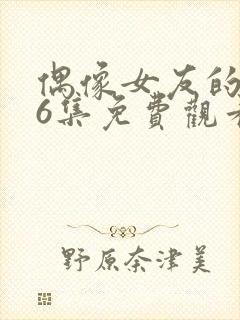 偶像女友的
6集免費觀看
野原奈津美